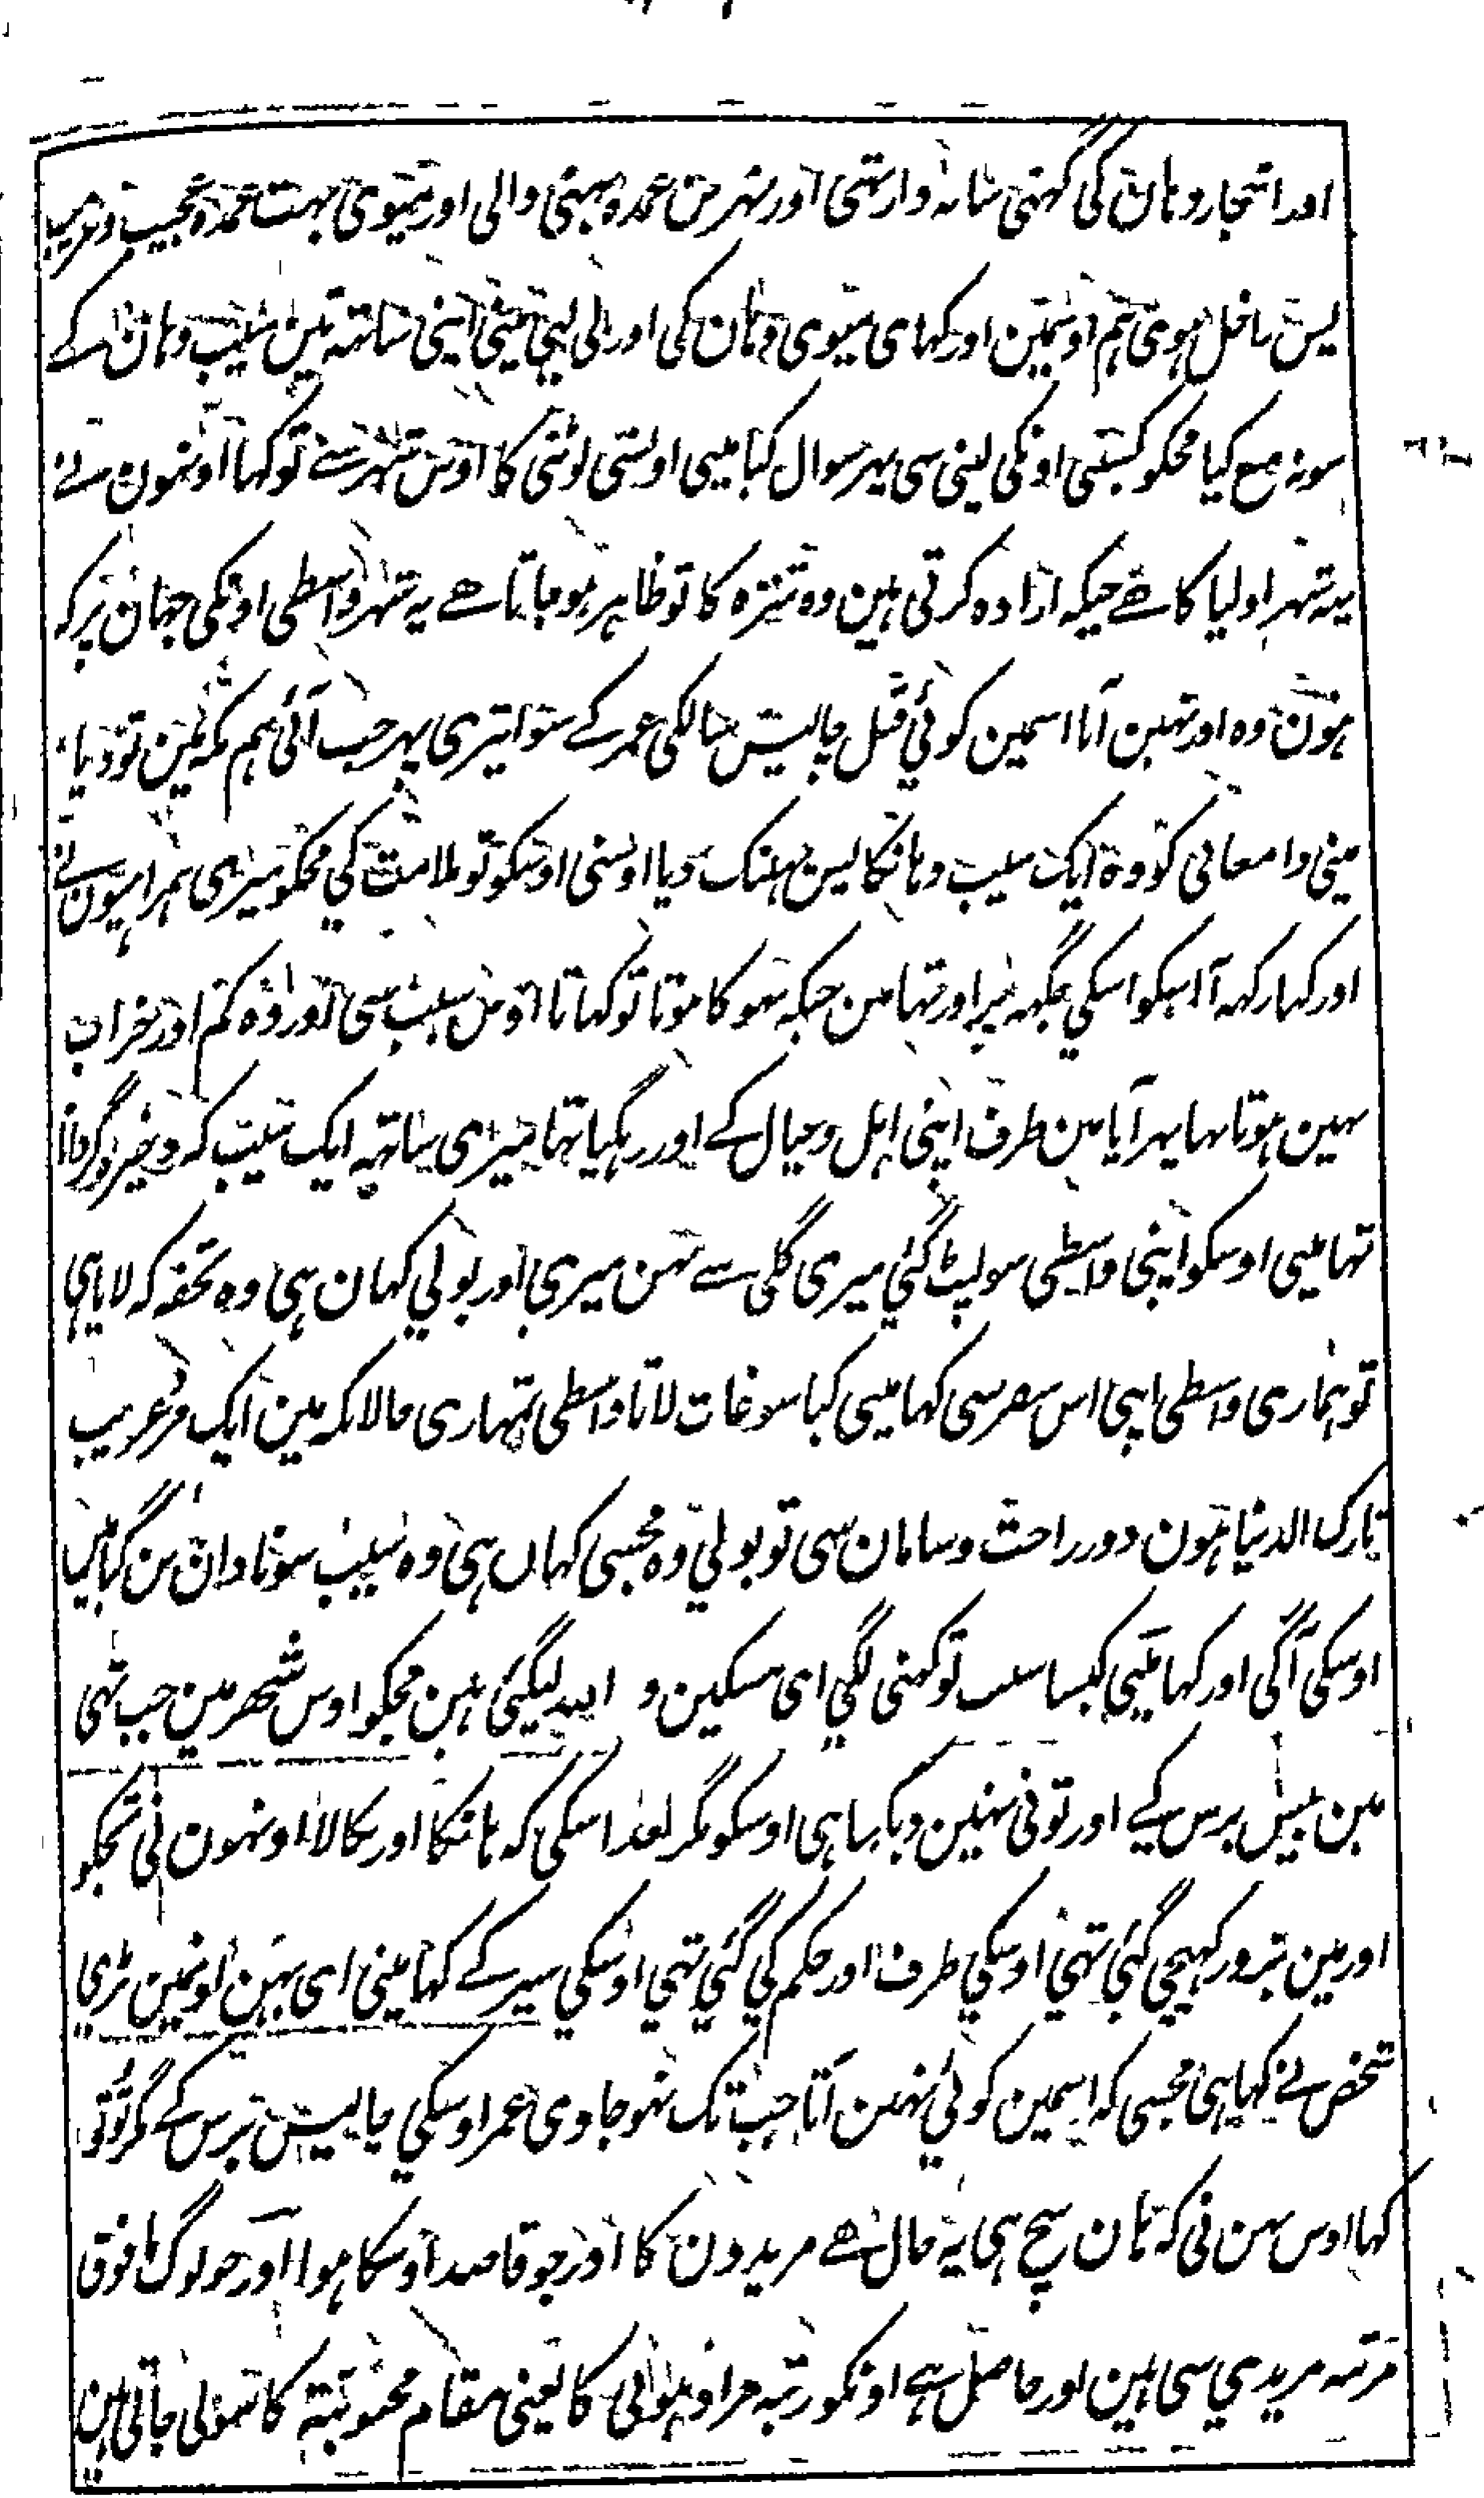 اور اشجار وہان کی گہنی سایہ دار تہی اور نہرین عمدہ بہنی والی اور میوی بہت عمدہ عجیب و غریب
پس داخل ہوی ہم اوسمین اور کہای میوی وہان کی اور لی لیی مینی اپنی ساتہ تین سیب وہان کے
سو نہ منع کیا مجکو کسینی اونکی لینی سی پہر سوال کیا مینی اوسنی کا اوس شہر سے تو کہا اونہون نے
یہ شہر اولیا کا ہے جبکہ ارادہ کرتی ہین وہ تنزہ کا تو ظاہر ہو جاتا ہے یہ شہر واسطی اونکی جہان پر کہ
ہون وہ اور نہین آتا اسمین کوئی قبل چالیس سالکی عمر کے سوا تیری پہر جب آئی ہم مکہ مین تو دیا
مینی دامعانی کو وہ ایک سیب وہانکا پس پہنک دیا اوسنی اوسکو تو ملامت کی مجکو میری ہمراہیون نے
اور کہا رکہہ آ اسکو اسکی جگہہ پر اور تہا مین جبکہ بہوکا ہوتا تو کہاتا اوس سیب سی اور وہ کم اور خراب
نہین ہوتا تہا پہر آیا مین طرف اپنی اہل و عیال کے اور رہگیا تہا میری ساتہہ ایک سیب کہ ذخیرہ کر رکہا
تہا مینی اوسکو اپنی واسطی سو لپٹ گئی میری گلی سے بہن میری اور بولی کہان ہی وہ تحفہ کہ لایا ہی
تو ہماری واسطی اپنی اس سفر سی کہا مینی کیا سوغات لاتا واسطی تمہاری حالانکہ مین ایک مرد غریب
تارک الدنیا ہون دور راحت و سامان سی تو بولی وہ مجہسی کہاں ہی وہ سیب سو نادان بن گیا مین
اوسکی آگی اور کہا مینی کیسا سیب تو کہنی لگی ای مسکین و اﷲ لیگئی ہین مجکو اوس شھر مین جب تہی
مین بیس برس کے اور تونی نہین دیکہا ہی اوسکو مگر بعد اسکی کہ ہانکا اور نکالا اونہون نی تجکو
اور مین بزور کہیچی گئی تہی اوسکی طرف اور حکم کی گئی تہی اوسکی سیر کے کہا مینی ای بہن اونمین بڑی
شخص نے کہا ہی مجہسی کہ اسمین کوئی نہین آتا جب تک نہو جاوی عمر اوسکی چالیس برس کے مگر تو تو
کہا اوس بہن نی کہ ہان سچ ہی یہ حال ہے مریدون کا اور جو قاصد اوسکا ہوا اور جو لوگ فوق
مرتبہ مریدي سی ہین اور حاصل ہے اونکو رتبہ مراد ہونی کا یعنی مقام محبوبیتہ کا سو لی جاتی ہین